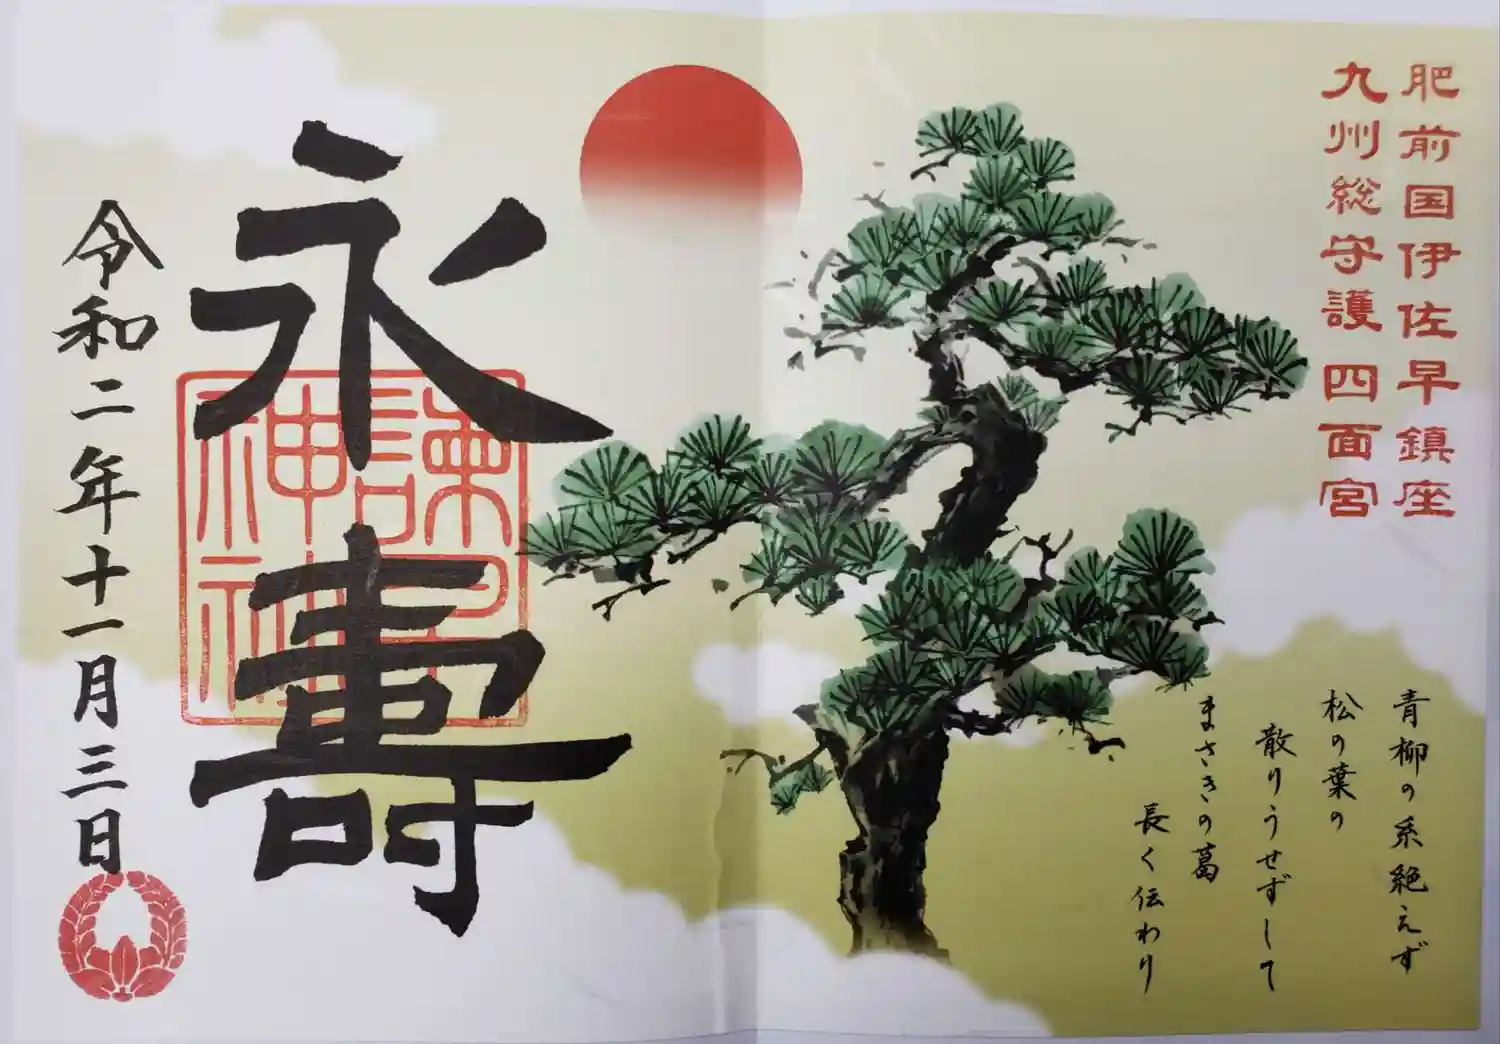 肥前国伊佐早鎮座
九州総守護 四面宮
青柳の糸絶えず
松の葉の
散りうせずして
まさきの葛
長く伝わり
永寿
諫早神社
令和二年十一月三日